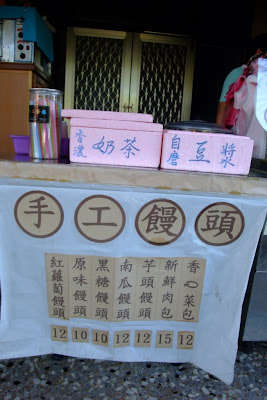 香濃奶茶
自磨豆漿
手工饅頭
紅蘿蔔饅頭 12
原味饅頭 10
黑糖饅頭 10
南瓜饅頭 12
芋頭饅頭 12
新鮮肉包 15
香Q菜包 12